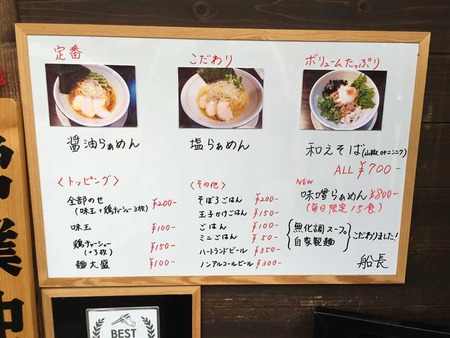 定番
こだわり
ボリュームたっぷり
醤油らぁめん
塩らぁめん
和えそば(山椒 or ニンニク)
ALL ¥700-
<トッピング>
全部のせ ¥200-
(味玉+鶏チャーシュー3枚)
味玉 ¥100-
鶏チャーシュー ¥150-
(+3枚)
麺大盛 ¥100-
<その他>
そぼろごはん ¥200-
玉子かけごはん ¥150-
ごはん ¥100-
ミニごはん ¥50-
ハートランドビール ¥350-
ノンアルコールビール ¥300-
NEW
味噌らぁめん ¥800-
(毎日限定15食)
無化調スープ
自家製麺
こだわりました!
船長
営業中
BEST